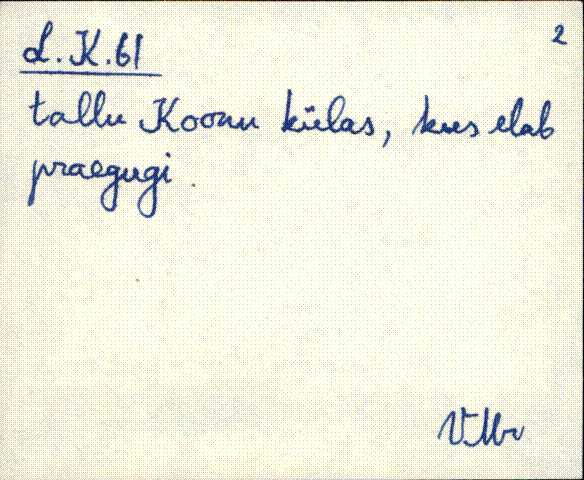 2
L.K.61
tallu Koonu külas, kus elab
praegugi.
VMr